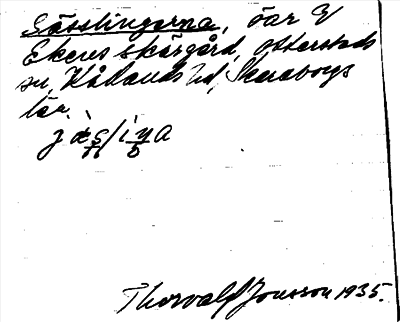 Gässlingarna, öar i
Ekens skärgård, Otterstads
sn, Kållands hd, Skaraborgs
län.
Thorvald Jonsson 1935.